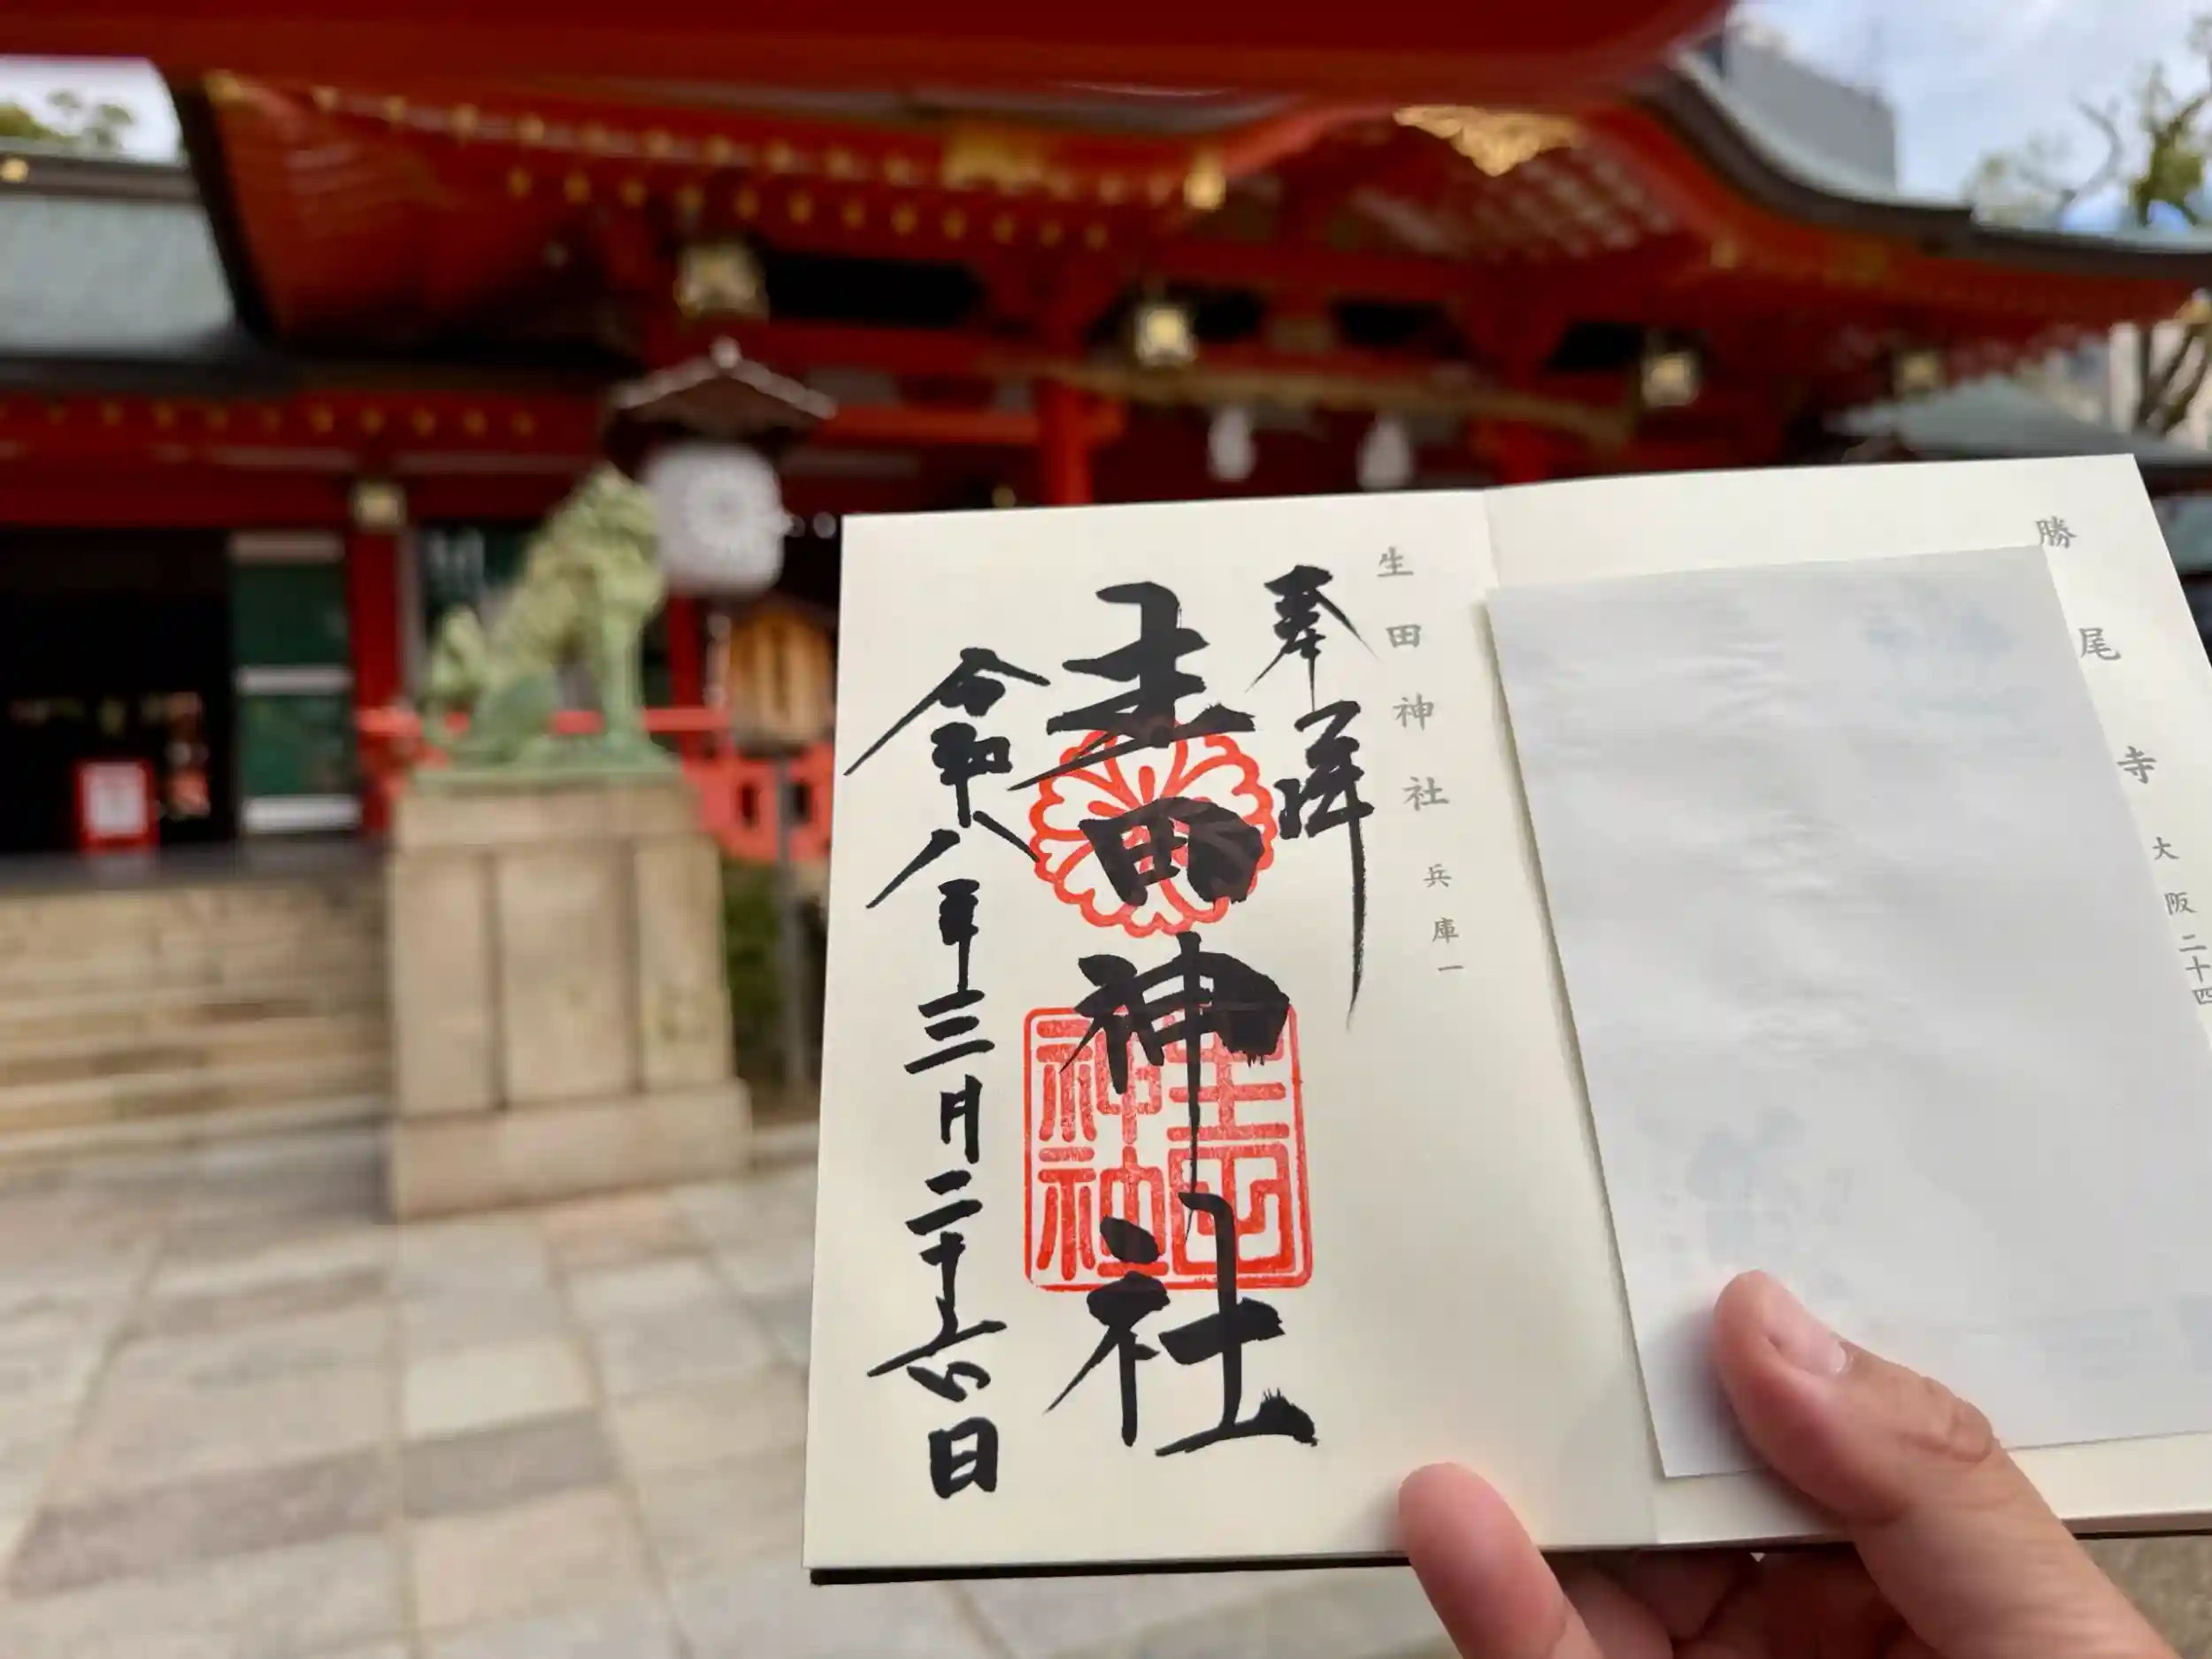 勝尾寺 大阪二十四
生田神社 兵庫一
奉拝
生田神社
生田神社
令和八年三月二十六日